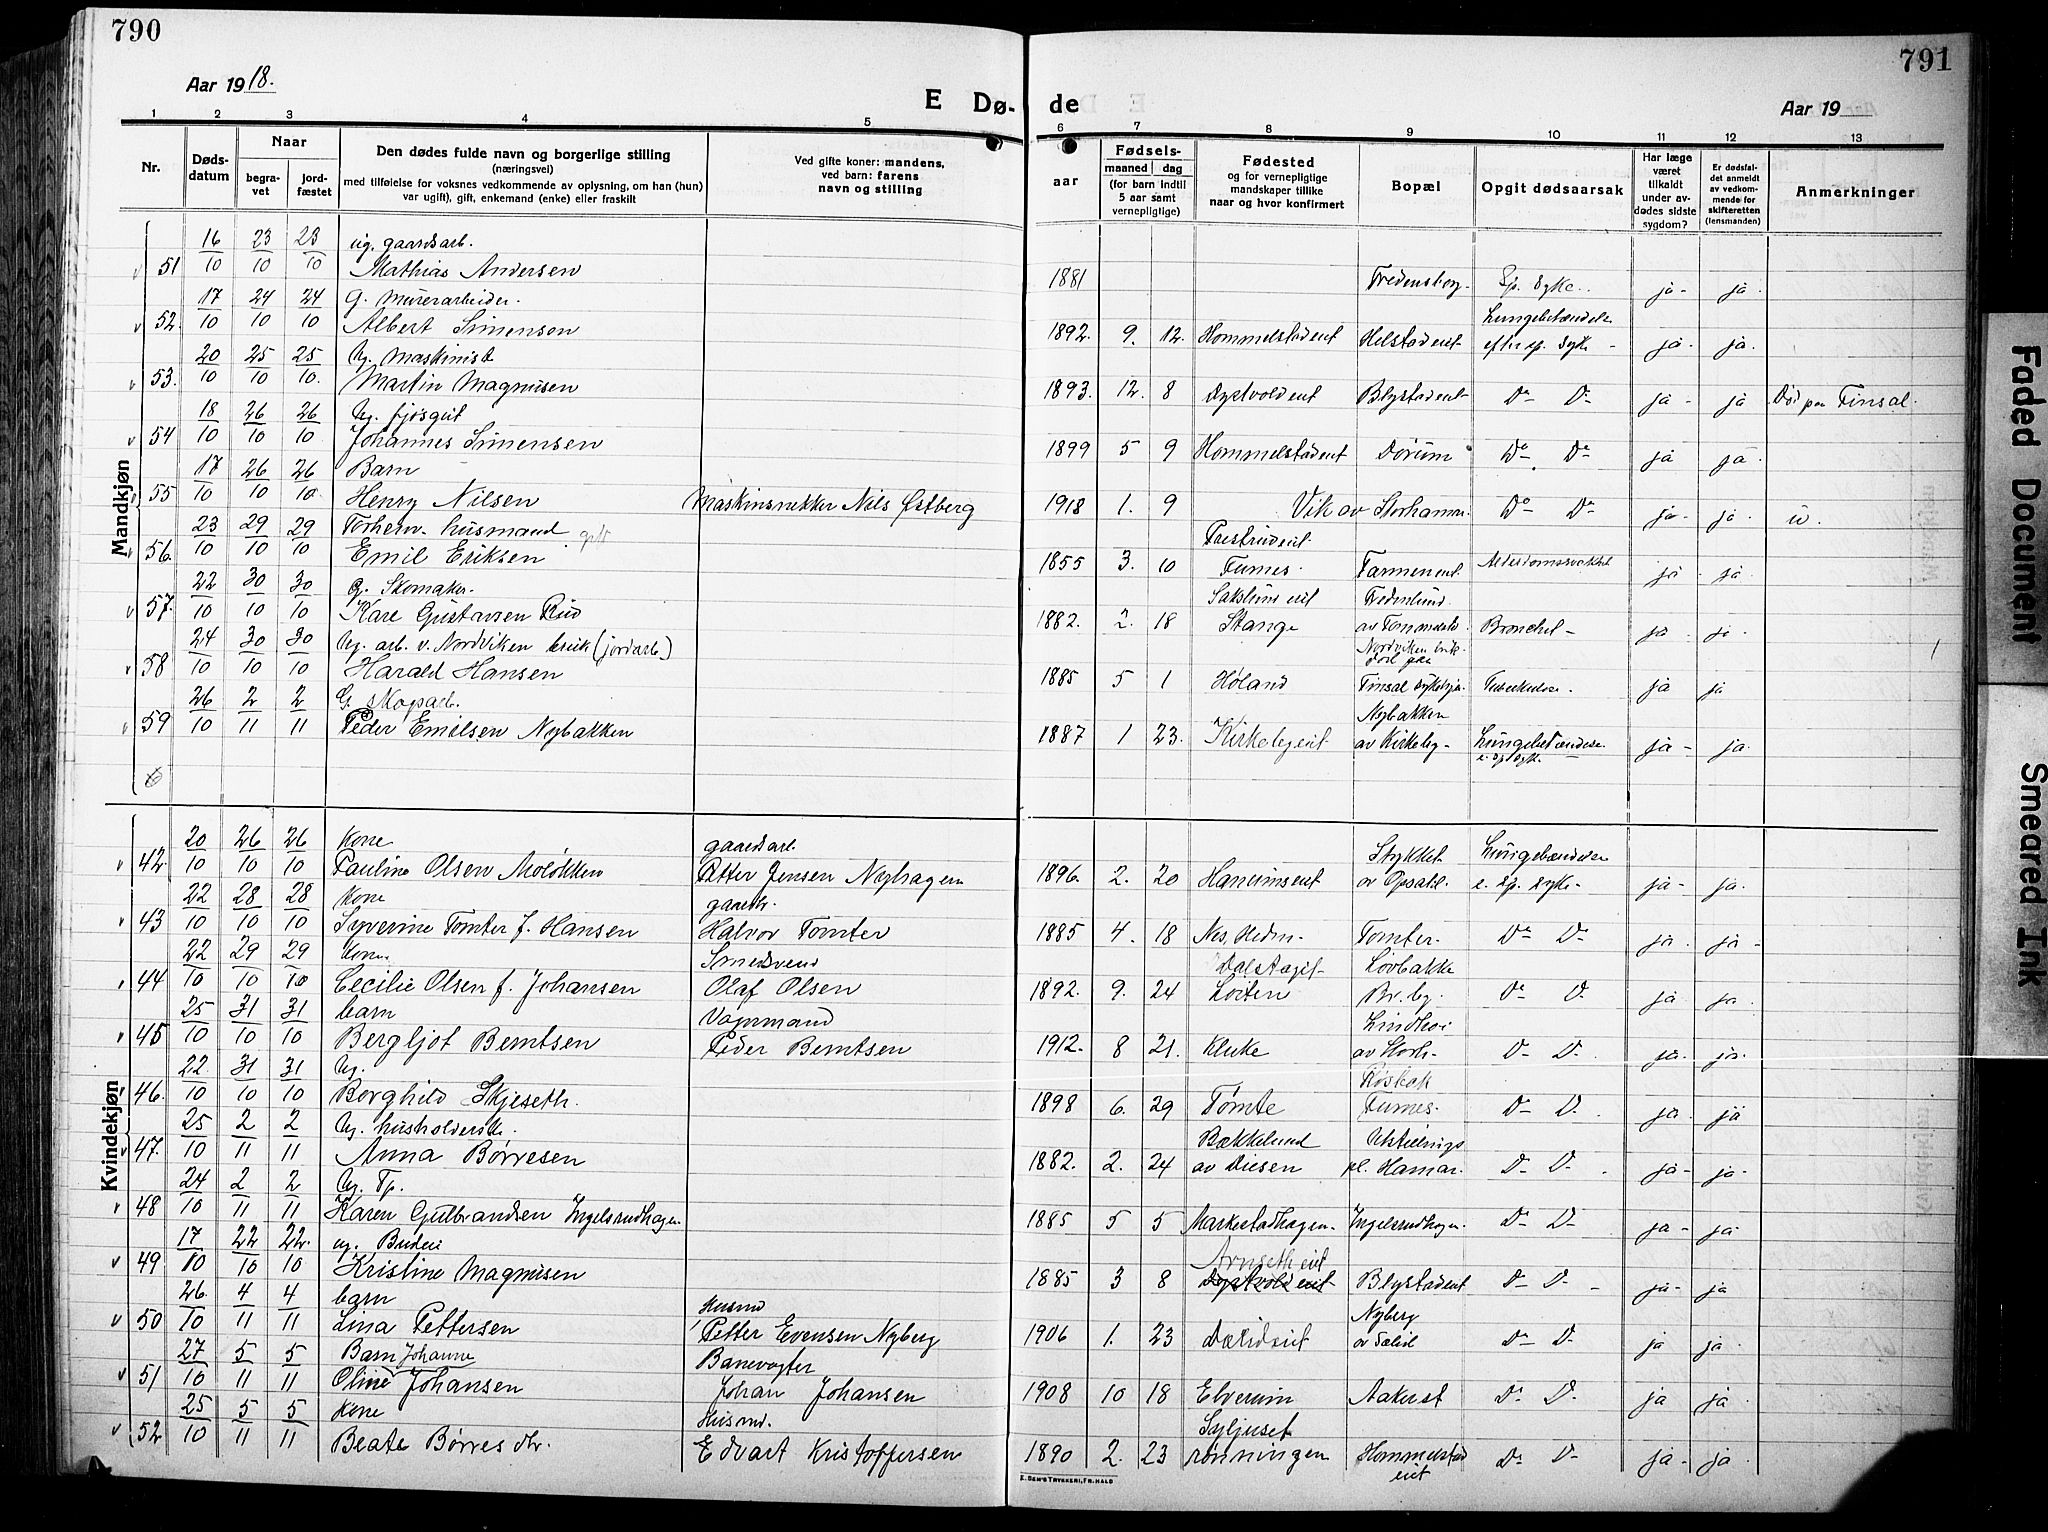 790
791
Aar 1918.
E Dø-
de
Aar 19
1 2 3 4 5 6 7 8 9 10 11 12 13
Nr.
Døds-
datum
Naar
begra-
vet
jord-
fæstet
Den dødes fulde navn og borgerlige stilling
(næringsvei)
med tilføielse for voksnes vedkommende av oplysning, om han (hun)
var ugift), gift, enkemand (enke) eller fraskilt
Ved gifte koner: mandens,
ved barn: farens
navn og stilling
Fødsels-
aar
maaned dag
(for barn indtil
5 aar samt
vernepligtige)
Fødested
og for vernepligtige
mandskaper tillike
naar og hvor konfirmert
Bopæl
Opgit dødsaarsak
Har læge
været
tilkaldt
under av-
dødes sidste
sygdom?
Er dødsfal-
det anmeldt
av vedkom-
mende for
skifteretten
(lensmanden)
Anmerkninger
Mandkjøn
16/10 23/10 23/10 ug. gaardsarb.
51 Mathias Andersen 1881 Fredensborg. Sp. syke. ja- ja
17/10 24/10 24/10 G. murerarbeider. Lungebetændelse
52. Albert Simenson 1892. 9. 12. Hommelstadeit Helstadeit efter sp. syke - ja. ja.
20/10 25/10 25/10 Ug. maskinist
53. Martin Magnusen 1893. 12. 8 Dystvoldeit Blystadeit Do Do ja - ja Død paa Finsal.
18/10 26/10 26/10 Ug. fjøsgut
54 Johannes Simensen 1899 5 9 Hommelstadeit Dørum Do Do ja ja
17/10 26/10 26/10 Barn
55 Henry Nilsen Maskinsnekker Nils Østberg 1918 1. 9 Vik av Storhamar. Do Do ja ja u.
23/10 29/10 29/10 husmand gift Prestrudeit
56. Emil Eriksen 1855 3. 10 Furnes. Alderdomssvakhet ja ja.
22/10 30/10 30/10 G. Skomaker. Fredenlund.
57. Kare Gustavsen Rud 1882. 2. 18 Stange Bronchit- ja ja.
24/10 30/10 30/10 Ug. arb. v. Nordviken bruk (jordarb.) Nordviken bruk
58 Harald Hansen 1885 5 1 Høland død paa Finsal sykehja. Tuberkulose. ja ja
26/10 2/11 2/11 G. skogarb. Nybakken
59 Peder Emilsen Nybakken 1887 1 23. Kirkebyeit av Kirkeby- Lungebetændelse e. sp. syk. ja - ja.
Kvindekjøn
20/10 26/10 26/10 Kone gaardsarb. Stykket Lungebetændelse
42. Pauline Olsen Moløkken Petter Jensen Nyhagen 1896. 2. 20 Hanumseit av Opsahl. e. sp. syke- ja- ja.
22/10 28/10 28/10 Kone gaardbr.
43 Syverine Tomter f. Hansen Halvor Tomter 1885 4. 18 Nes, Hedm- Tomter. Do Do ja ja -
22/10 29/10 29/10 Kone Smedsvend Løvbakke
44 Cecilie Olsen f. Johansen Olaf Olsen 1892. 9. 24 Løiten Br. by. Do D. ja ja.
25/10 31/10 31/10 barn Vognmand
45 Bergljot Berntsen Peder Berntsen 1912. 8 21. Kluke av Storh- D- D- ja. ja.
22/10 31/10 31/10 Ug. Rosbak
46. Borghild Skjeseth. 1898 6. 29 Tømte Furnes. D- D. ja. ja
25/10 2/11 2/11 Ug. husholdersk. Bækkelund Utstillings
47. Anna Børresen 1882. 2. 24 av Diesen pl. Hamar. D- D- ja - ja.
24/10 2/11 2/11 Ug. Tp.
48 Karen Gulbrandsen Ingelsrudhagen 1885 5 5 Markestadhagen- Ingelsrudhagen. D- D- ja - ja
17/10 22/10 22/10 ug. Budeie Arnseth eit
49 Kristine Magnusen 1885 3 8 Dystvold eit Blystadeit D- D- ja- ja
26/10 4/11 4/11 barn Husmd Nyberg
50 Lina Pettersen Petter Evensen Nyberg 1906 1. 23 Dælideit D- D- ja ja.
27/10 5/11 5/11 Barn Johanne Banevogter
51 Oline Johansen Johan Johansen 1908 10 18 Elverum Aakerst D- D. ja ja
25/10 5/11 5/11 Kone Husmd. Syljuset
52. Beate Børresdtr. Edvart Kristoffersen 1890 2. 23 rønningen Hommelstad eit D- D- ja - ja.
E. SEM'S TRYKKERI, FR.HALD
Faded Document
Smeared Ink